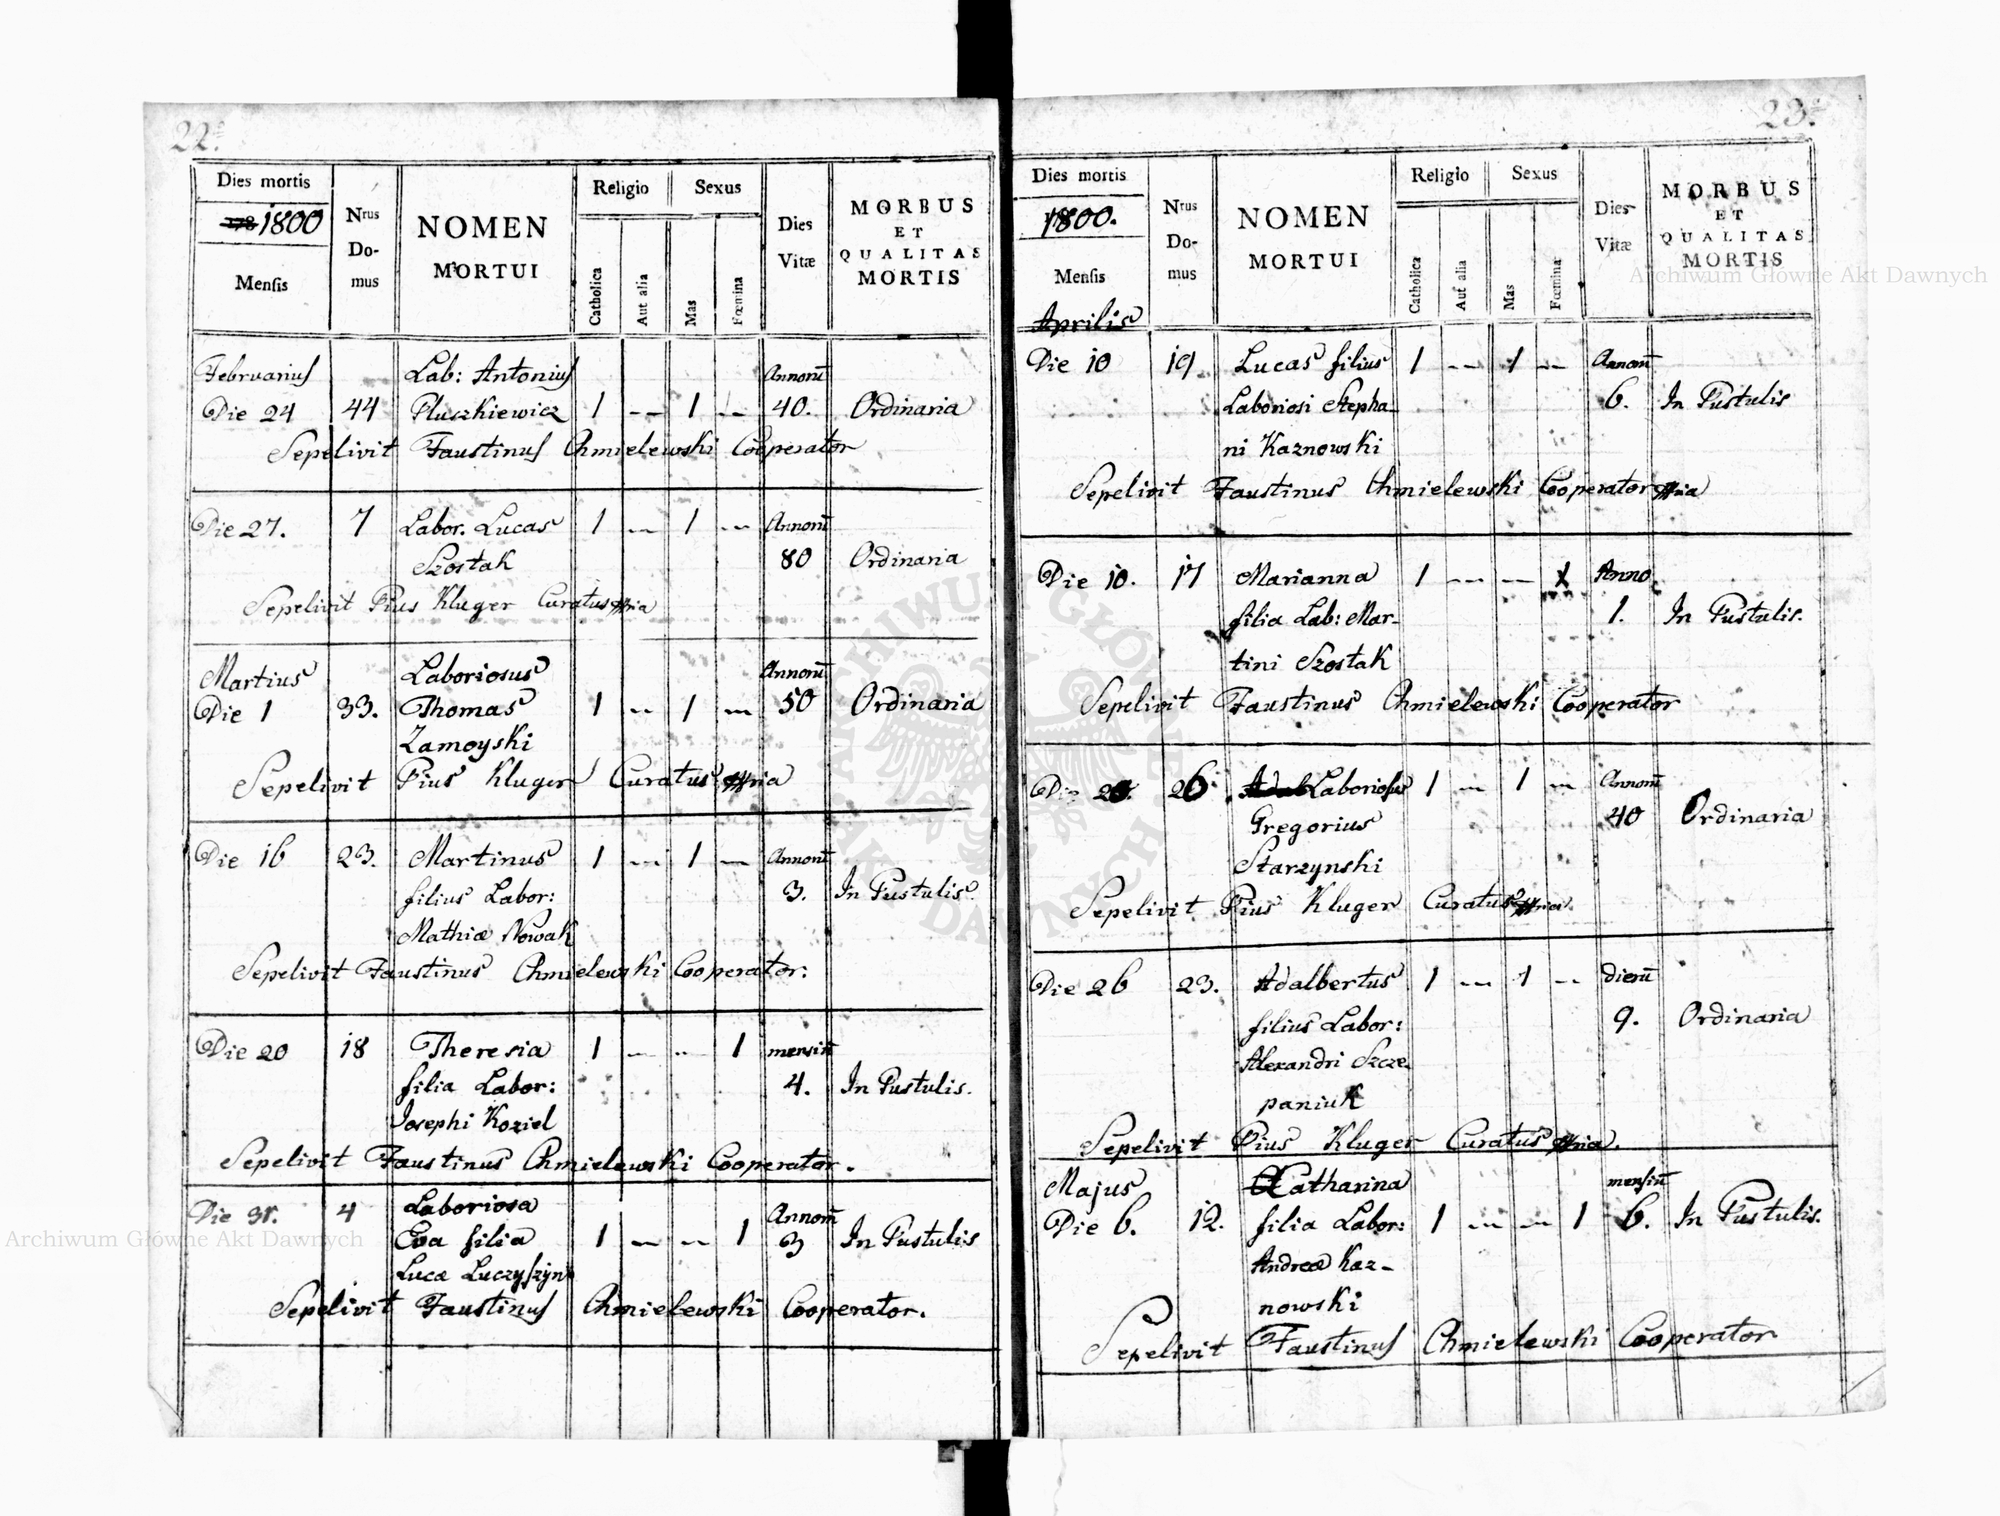 22.
Dies mortis
1800
Mensis
Nrus
Do-
mus
NOMEN
MORTUI
Religio
Catholica
Aut alia
Sexus
Mas
Fœmina
Dies
Vitæ
MORBUS
ET
QUALITAS
MORTIS
Februarius Lab: Antonius Annorū
Die 24 44 Pluszkiewicz 1 -- 1 -- 40. Ordinaria
Sepelivit Faustinus Chmielewski Cooperator
Die 27. 7 Labor. Lucas 1 -- 1 -- Annorū
Szostak 80 Ordinaria
Sepelivit Pius Kluger Curatus mpria
Martius Laboriosus Annorū
Die 1 33. Thomas 1 -- 1 -- 50 Ordinaria
Zamoyski
Sepelivit Pius Kluger Curatus mpria
Die 16 23. Martinus 1 -- 1 -- Annorū
filius Labor: 3. In Pustulis.
Mathiæ Nowak
Sepelivit Faustinus Chmielewski Cooperator:
Die 20 18 Theresia 1 -- -- 1 mensiū
filia Labor: 4. In Pustulis.
Josephi Koziel
Sepelivit Faustinus Chmielewski Cooperator.
Die 31. 4 Laboriosa Annorū
Eva filia 1 -- -- 1 3 In Pustulis
Lucæ Luczyszyn
Sepelivit Faustinus Chmielewski Cooperator.
23.
Dies mortis
1800.
Mensis
Aprilis
Nrus
Do-
mus
NOMEN
MORTUI
Religio
Catholica
Aut alia
Sexus
Mas
Fœmina
Dies
Vitæ
MORBUS
ET
QUALITAS
MORTIS
Die 10 19 Lucas filius 1 -- 1 -- Annorū
Laboriosi Stepha- 6. In Pustulis
ni Kaznowski
Sepelivit Faustinus Chmielewski Cooperator mpria
Die 10. 17 Marianna 1 -- -- 1 Anno
filia Lab: Mar- 1. In Pustulis.
tini Szostak
Sepelivit Faustinus Chmielewski Cooperator
Die 26 Laboriosus 1 -- 1 -- Annorū
Gregorius 40 Ordinaria
Starzynski
Sepelivit Pius Kluger Curatus mpria.
Die 26 23. Adalbertus 1 -- 1 -- dierū
filius Labor: 9. Ordinaria
Alexandri Szcze-
paniuk
Sepelivit Pius Kluger Curatus mpria.
Majus Catharina mensiū
Die 6. 12. filia Labor: 1 -- -- 1 6. In Pustulis.
Andreæ Kaz-
nowski
Sepelivit Faustinus Chmielewski Cooperator
Archiwum Główne Akt Dawnych
Archiwum Główne Akt Dawnych
ARCHIWUM GŁÓWNE AKT DAWNYCH